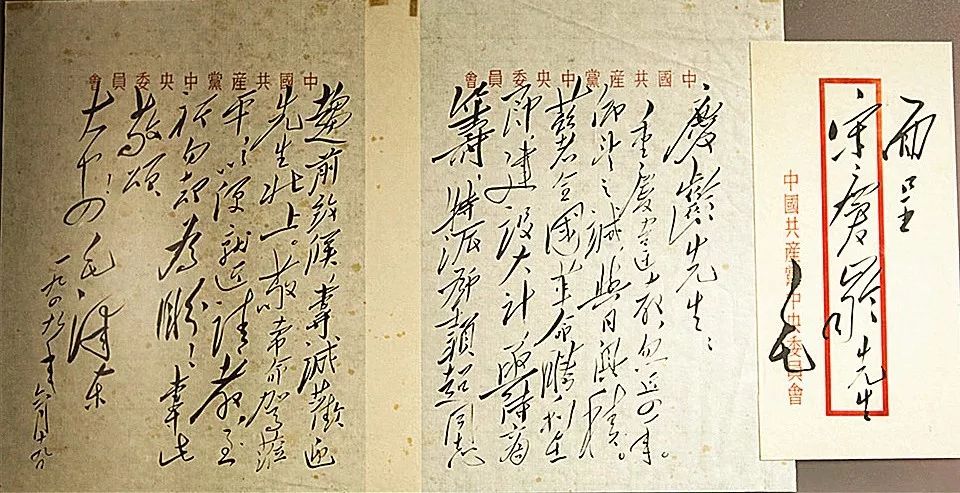 面呈
宋慶齡先生
毛
中國共產黨中央委員會
中國共產黨中央委員會
慶齡先生：
重慶違教，忽近四年。
仰望之誠，與日俱積。
茲者全國革命勝利在
即，建設大計，亟待商
籌，特派鄧穎超同志
中國共產黨中央委員會
趨前致候，專誠歡迎
先生北上。敬希命駕蒞
平，以便就近請教，至
祈勿却為盼！專此
敬頌
大安！
毛澤東
一九四九年六月十九日